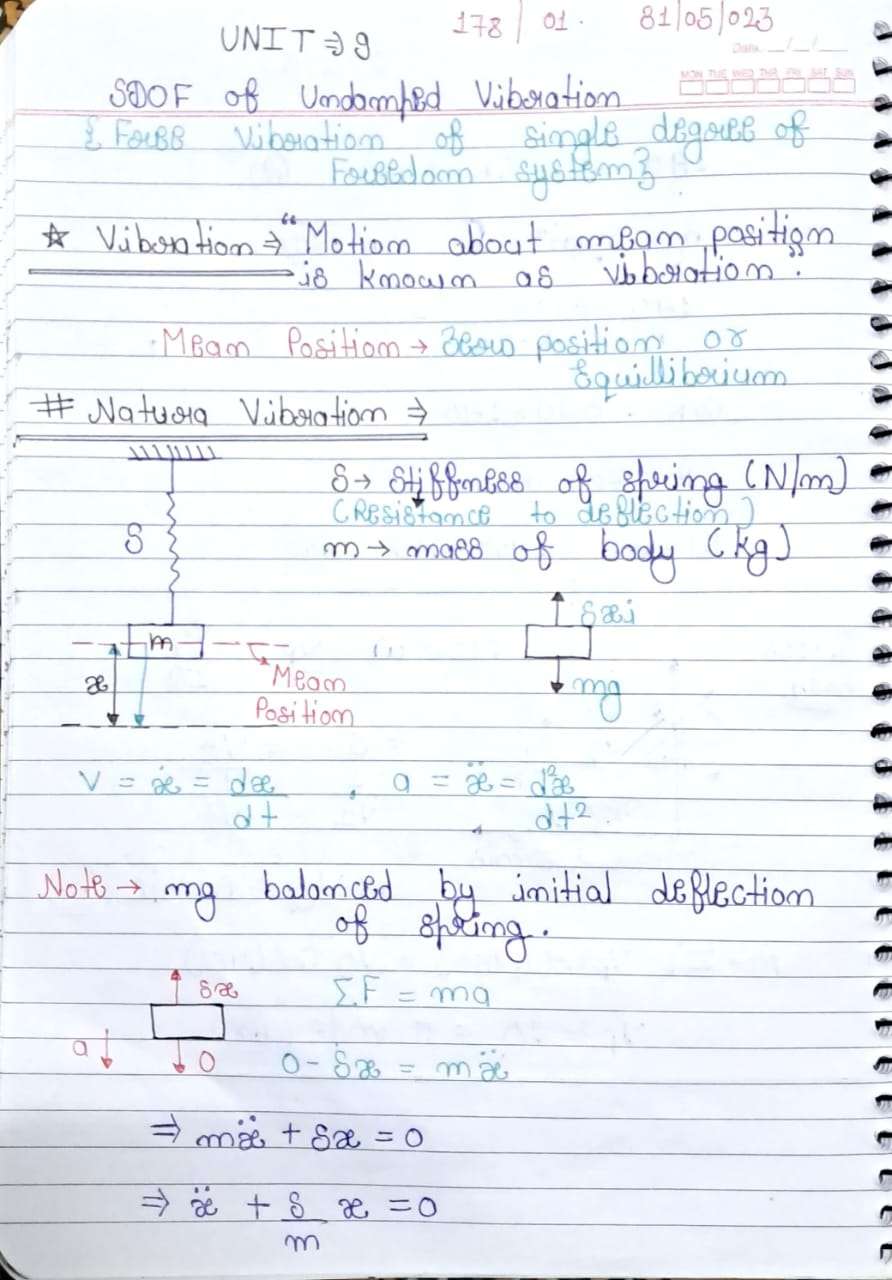 178 / 01. 31/05/023
UNIT ⇒ 9
Date __/__/__
MON TUE WED THR FRI SAT SUN
SDOF of Undamped Vibration
{ Free Vibration of single degree of
Freedom system}
☆ Vibration ⇒ "Motion about mean position
is known as vibration".
Mean Position → Zero position or
Equillibrium
# Natura Vibration ⇒
S → Stiffness of spring (N/m)
(Resistance to deflection)
S
m → mass of body (kg)
S xi
m
x
Mean
Position
mg
V = ẋ = dx/dt , a = ẍ = d²x/dt²
Note → mg balanced by initial deflection
of spring.
Sx
ΣF = ma
a
0
0 - Sx = mẍ
⇒ mẍ + Sx = 0
⇒ ẍ + S/m x = 0